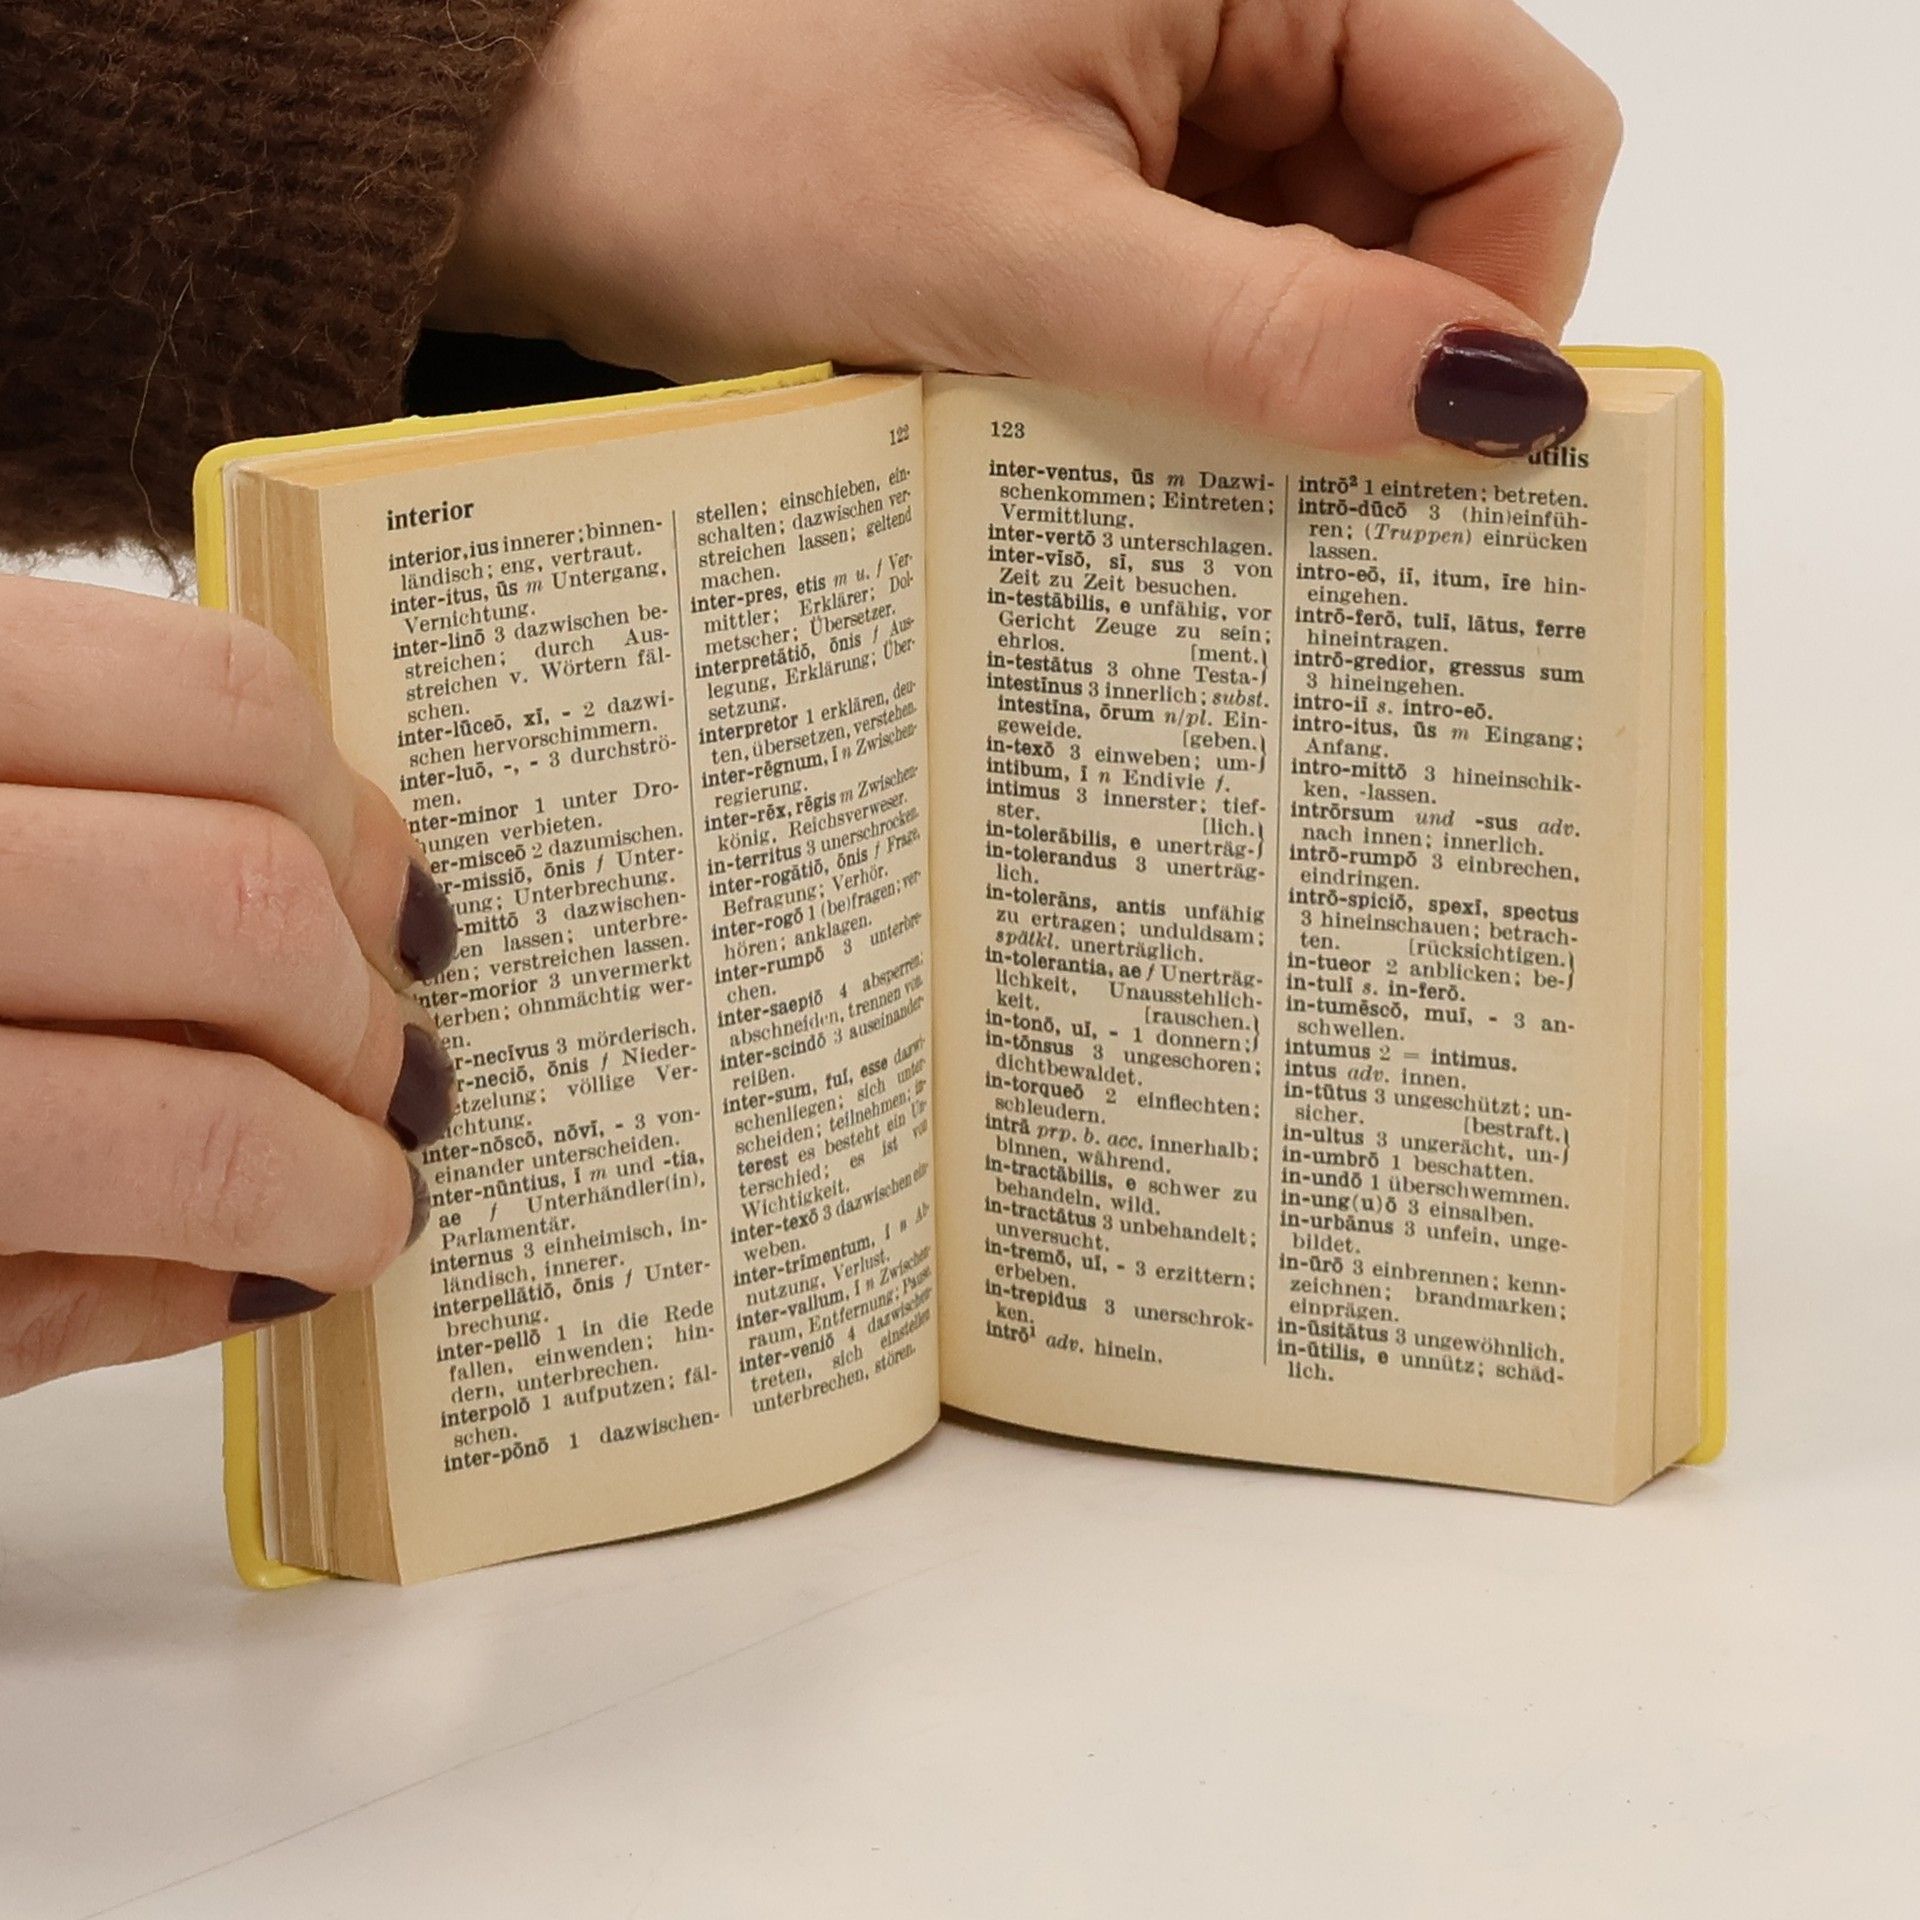 122
interior
interior, ius innerer; binnen-
ländisch; eng, vertraut.
inter-itus, ūs m Untergang,
Vernichtung.
inter-linō 3 dazwischen be-
streichen; durch Aus-
streichen v. Wörtern fäl-
schen.
inter-lūceō, xī, - 2 dazwi-
schen hervorschimmern.
inter-luō, -, - 3 durchströ-
men.
nter-minor 1 unter Dro-
hungen verbieten.
er-misceō 2 dazumischen.
r-missiō, ōnis f Unter-
ung; Unterbrechung.
-mittō 3 dazwischen-
ten lassen; unterbre-
hen; verstreichen lassen.
nter-morior 3 unvermerkt
terben; ohnmächtig wer-
en.
r-necīvus 3 mörderisch.
r-neciō, ōnis f Nieder-
etzelung; völlige Ver-
ichtung.
inter-nōscō, nōvī, - 3 von-
einander unterscheiden.
nter-nūntius, ī m und -tia,
ae f Unterhändler(in),
Parlamentär.
internus 3 einheimisch, in-
ländisch, innerer.
interpellātiō, ōnis f Unter-
brechung.
inter-pellō 1 in die Rede
fallen, einwenden; hin-
dern, unterbrechen.
interpolō 1 aufputzen; fäl-
schen.
inter-pōnō 1 dazwischen-
stellen; einschieben, ein-
schalten; dazwischen ver-
streichen lassen; geltend
machen.
inter-pres, etis m u. f Ver-
mittler; Erklärer; Dol-
metscher; Übersetzer.
interpretātiō, ōnis f Aus-
legung, Erklärung; Über-
setzung.
interpretor 1 erklären, deu-
ten, übersetzen, verstehen.
inter-rēgnum, ī n Zwischen-
regierung.
inter-rēx, rēgis m Zwischen-
könig, Reichsverweser.
in-territus 3 unerschrocken.
inter-rogātiō, ōnis f Frage,
Befragung; Verhör.
inter-rogō 1 (be)fragen; ver-
hören; anklagen.
inter-rumpō 3 unterbre-
chen.
inter-saepiō 4 absperren;
abschneiden, trennen von
inter-scindō 3 auseinander-
reißen.
inter-sum, fuī, esse dazwi-
schenliegen; sich unter-
scheiden; teilnehmen; in-
terest es besteht ein Un-
terschied; es ist von
Wichtigkeit.
inter-texō 3 dazwischen ein-
weben.
inter-trīmentum, ī n Ab-
nutzung, Verlust.
inter-vallum, ī n Zwischen-
raum, Entfernung; Pause.
inter-veniō 4 dazwischen-
treten, sich einstellen
unterbrechen, stören.
123
utilis
inter-ventus, ūs m Dazwi-
schenkommen; Eintreten;
Vermittlung.
inter-vertō 3 unterschlagen.
inter-vīsō, sī, sus 3 von
Zeit zu Zeit besuchen.
in-testābilis, e unfähig, vor
Gericht Zeuge zu sein;
ehrlos. [ment.}
in-testātus 3 ohne Testa-}
intestīnus 3 innerlich; subst.
intestīna, ōrum n/pl. Ein-
geweide. [geben.}
in-texō 3 einweben; um-}
intibum, ī n Endivie f.
intimus 3 innerster; tief-
ster. [lich.}
in-tolerābilis, e unerträg-}
in-tolerandus 3 unerträg-
lich.
in-tolerāns, antis unfähig
zu ertragen; unduldsam;
spätkl. unerträglich.
in-tolerantia, ae f Unerträg-
lichkeit, Unausstehlich-
keit. [rauschen.}
in-tonō, uī, - 1 donnern;}
in-tōnsus 3 ungeschoren;
dichtbewaldet.
in-torqueō 2 einflechten;
schleudern.
intrā prp. b. acc. innerhalb;
binnen, während.
in-tractābilis, e schwer zu
behandeln, wild.
in-tractātus 3 unbehandelt;
unversucht.
in-tremō, uī, - 3 erzittern;
erbeben.
in-trepidus 3 unerschrok-
ken.
intrō¹ adv. hinein.
intrō² 1 eintreten; betreten.
intrō-dūcō 3 (hin)einfüh-
ren; (Truppen) einrücken
lassen.
intro-eō, iī, itum, īre hin-
eingehen.
intrō-ferō, tulī, lātus, ferre
hineintragen.
intrō-gredior, gressus sum
3 hineingehen.
intro-iī s. intro-eō.
intro-itus, ūs m Eingang;
Anfang.
intro-mittō 3 hineinschik-
ken, -lassen.
intrōrsum und -sus adv.
nach innen; innerlich.
intrō-rumpō 3 einbrechen,
eindringen.
intrō-spiciō, spexī, spectus
3 hineinschauen; betrach-
ten. [rücksichtigen.}
in-tueor 2 anblicken; be-}
in-tulī s. in-ferō.
in-tumēscō, muī, - 3 an-
schwellen.
intumus 2 = intimus.
intus adv. innen.
in-tūtus 3 ungeschützt; un-
sicher. [bestraft.}
in-ultus 3 ungerächt, un-}
in-umbrō 1 beschatten.
in-undō 1 überschwemmen.
in-ung(u)ō 3 einsalben.
in-urbānus 3 unfein, unge-
bildet.
in-ūrō 3 einbrennen; kenn-
zeichnen; brandmarken;
einprägen.
in-ūsitātus 3 ungewöhnlich.
in-ūtilis, e unnütz; schäd-
lich.